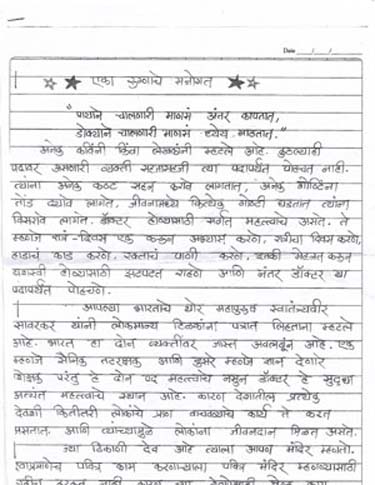 Date ___/___/___
एका रुग्णाचे मनोगत
" पायाने चालणारी माणसं अंतर कापतात,
डोक्याने चालणारी माणसं ध्येय गाठतात."
अनेक कवींनी किंवा लेखकांनी म्हटले आहे. कुठल्याही
पदावर असणारी व्यक्ती सहजासहजी त्या पदापर्यंत पोहचत नाही.
त्यांना अनेक कष्ट सहन करावे लागतात, अनेक गोष्टींना
तोंड द्यावे लागते, जीवनामध्ये कित्येक गोष्टी घडतात त्यांना
विसरावे लागते. डॉक्टर होण्यासाठी सर्वात महत्त्वाचे असते. ते
म्हणजे रात्रं-दिवस एक करून अभ्यास करणे, रात्रीचा दिवस करणे,
हाडांचं काड करणे, रक्ताचं पाणी करणे, इतकी मेहनत करून
यशस्वी होण्यासाठी झटपटत राहणे आणि नंतर डॉक्टर या
पदापर्यंत पोहचणे.
आपल्या भारताचे थोर महापुरुष स्वातंत्र्यवीर
सावरकर यांनी लोकमान्य टिळकांना पत्रात लिहताना म्हटले
आहे. भारत हा दोन व्यक्तीवर जास्त अवलंबून आहे. एक
म्हणजे सैनिक तटरक्षक आणि दुसरे म्हणजे ज्ञान देणारे
शिक्षक परंतु हे दोन पद महत्त्वाचे नसुन डॉक्टर हे सुद्धा
अत्यंत महत्त्वाचे स्थान आहे. कारण देशातील प्रत्येक
देवळी कितीतरी लोकांचे प्राण वाचवण्याचे कार्य ते करत
असतात. आणि त्यांच्यामुळे लोकांना जीवनदान मिळत असते.
ज्या ठिकाणी देव आहे त्याला आपण मंदिर म्हणतो.
त्याप्रमाणेच पवित्र काम करणाऱ्याला पवित्र मंदिर म्हणण्यासाठी